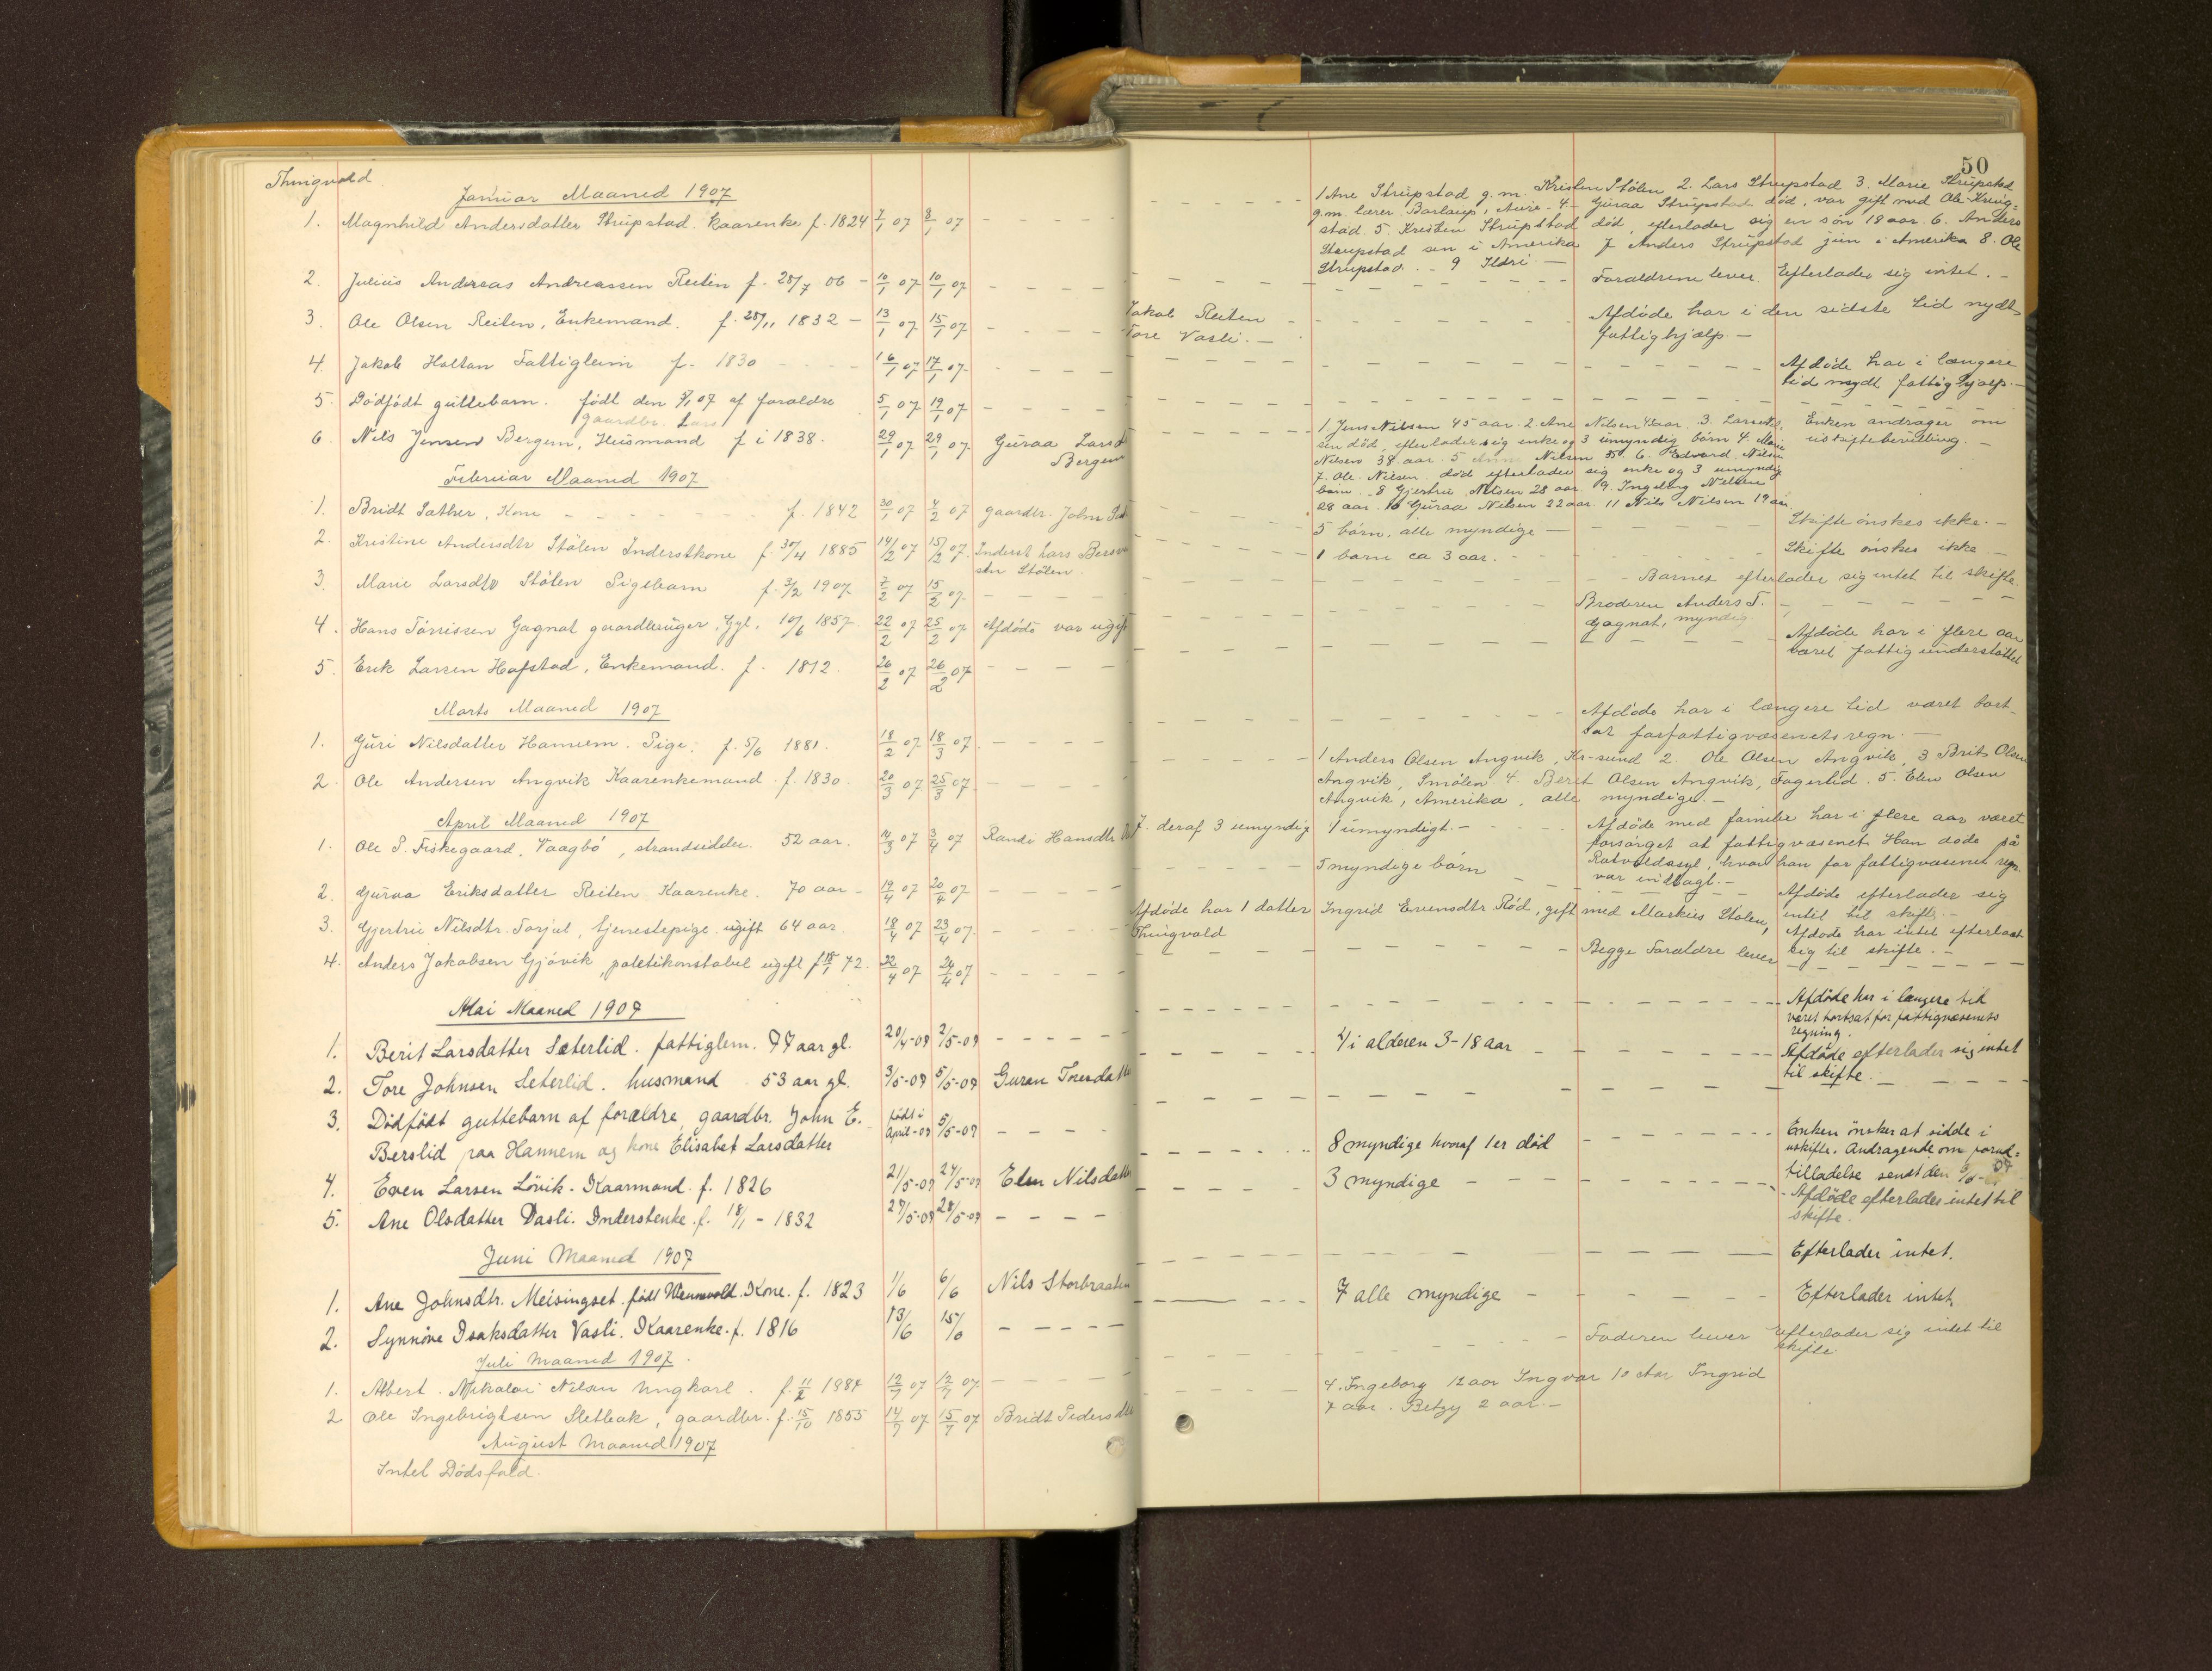 50
Thingvold
Januar Maaned 1907
1. Magnhild Andersdatter Strupstad. Kaarenke f. 1824 7/1 07 8/1 07 - - - -
2. Julius Andreas Andreassen Reiten f. 28/7 06 - 10/1 07 10/1 07 - - - -
3. Ole Olsen Reiten, Enkemand. f. 28/11 1832 - 13/1 07 15/1 07 - - - -
4. Jakob Holtan Fattiglem f. 1830 - - - - 16/1 07 17/1 07 - - - -
5. Dødfødt guttebarn. født den 5/1 07 af foraldre 5/1 07 19/1 07 - - - -
gaardbr. Lars
6. Nils Jensen Bergem, Husmand f i 1838. 29/1 07 29/1 07. Guraa Larsd
Bergem
Februar Maaned 1907
1. Bridt Sather, Kone - - - - f. 1842 30/1 07 4/2 07 gaardbr. John Sat
2. Kristine Andersdtr Stölen Inderstkone f. 30/4 1885 14/2 07 15/2 07. Inderst Lars Bersva
sen Stölen.
3. Marie Larsdtr Stölen Pigebarn f. 3/2 1907. 7/2 07 15/2 07. - - - -
4. Hans Törrissen Gagnat gaardbruger, Gyl. 10/6 1857. 22/2 07 25/2 07 Afdøde var ugif
5. Erik Larsen Hafstad, Enkemand. f. 1812. 26/2 07 26/2 07 - - - -
Marts Maaned 1907
1. Guri Nilsdatter Hannem. Pige. f. 5/6 1881. 18/2 07 18/3 07. - - - -
2. Ole Andersen Angvik Kaarenkemand. f. 1830. 20/3 07 25/3 07. - - - -
April Maaned 1907
1. Ole P. Fiskegaard, Vaagbö, strandsidder. 52 aar. 14/3 07 3/4 07 Randi Hansdtr
2. Guraa Eriksdatter Reiten Kaarenke. 70 aar - 19/4 07 20/4 07 - - - -
3. Gjertru Nilsdtr. Torjul, tjenestepige ugift 64 aar 18/4 07 23/4 07. - - - -
4. Anders Jakobsen Gjövik, politikonstabel ugift f 18/1 72. 22/4 07 24/4 07 - - - -
Mai Maaned 1907
1. Berit Larsdatter Sæterlid. fattiglem. 77 aar gl. 20/4-07 2/5-07 - - - -
2. Tore Johnsen Seterlid. husmand 53 aar gl. 3/5-07 5/5-07 Guran Toresdatte
3. Dödfödt guttebarn af forældre, gaardbr. John E. født i April-07 5/5-07 - - - -
Berslid paa Hannem og kone Elisabet Larsdatter
4. Even Larsen Lövik. Kaarmand. f. 1826 21/5-07 24/5-07 Elen Nilsdatte
5. Ane Olsdatter Vasli. Inderstenke. f. 18/1 - 1832 27/5-07 28/5-07 - - - -
Juni Maaned 1907
1. Ane Johnsdtr. Meisingset, født Wennevold. Kone. f. 1823 1/6 6/6 Nils Storbraaten
2. Synnöve Isaksdatter Vasli. Kaarenke. f. 1816 13/6 15/6 - - - -
Juli Maaned 1907.
1. Albert Nikolai Nilsen Ungkarl. f. 11/2 1987 12/7 07 12/7 07 - - - -
2 Ole Ingebrigtsen Sletbak, gaardbr. f. 15/10 1855 14/7 07 15/7 07 Bridt Pedersdtr
August Maaned 1907
Intet Dødsfald.
1 Ane Strupstad g.m. Kristen Stölen 2. Lars Strupstad 3. Marie Strupstad
g.m. lærer Barlaup, Aure - 4 - Guraa Strupstad död, var gift med Ole Kving=
stad 5. Kristen Strupstad död, efterlader sig en sön 18 aar. 6. Anders
Strupstad sen i Amerika 7 Anders Strupstad jun i Amerika 8. Ole
Strupstad. - 9 Ildri. -
Foraldrene lever. Efterlader sig intet. -
Jakob Reiten
Tore Vasli. -
Afdöde har i den sidste tid nydt
fattighjælp. -
Afdöde har i længere
tid nydt fattighjælp. -
1. Jens Nilsen 45 aar. 2. Ane Nilsen 42 aar. 3. Lars Nil-
sen död, efterlader sig enke og 3 umyndig börn 4. Marie
Nilsen 38 aar. 5 Nilsen 35 6. Edvard Nilsen
7. Ole Nilsen död efterlader sig enke og 3 umyndig
barn. 8 Gjertru Nilsen 28 aar. 9. Ingeborg Nilsen
28 aar. 10 Guraa Nilsen 22 aar. 11 Nils Nilsen 19 aar
Enken andrager om
uskiftebevilling. -
5 börn, alle myndige - Skifte önskes ikke. -
1 barn ca 3 aar. - Skifte önskes ikke. -
Barnet efterlader sig intet til skifte.
Broderen Anders T.
Gagnat, myndig
Afdöde har i flere aar
været fattigunderstöttet
Afdöde har i længere tid været bort-
sat for fattigvæsenets regn. -
1 Anders Olsen Angvik, Kr-sund 2. Ole Olsen Angvik, 3 Brit Olsen
Angvik, Smölen 4. Berit Olsen Angvik, Fagerlid. 5. Elen Olsen
Angvik, Amerika, alle myndige. -
7. deraf 3 umyndig 1 umyndigt. -
Afdöde med familie har i flere aar været
forsörget af fattigvæsenet. Han döde på
Rotvoldasyl, hvor han for fattigvæsenet regn.
var indlagt. -
5 myndige börn
Afdöde efterlader sig
intet til skifte. -
Afdöde har 1 datter Ingrid Evensdtr Röd, gift med Markus Stölen,
Thingvold
Afdöde har intet efterladt
sig til skifte. -
Begge Foraldre lever
Afdöde har i længere tid
været bortsat for fattigvæsenets
regning.
4 i alderen 3-18 aar
Afdöde efterlader sig intet
til skifte.
8 myndige hvoraf 1 er död
Enken önsker at sidde i
uskifte. Andragende om forud=
tilladelse sendt den
3 myndige
Afdöde efterlader intet til
skifte.
Efterlader intet.
7 alle myndige Efterlader intet.
Faderen lever Efterlader sig intet til
skifte.
4. Ingeborg 12 aar Ingvar 10 Aar Ingrid
7 aar. Betzy 2 aar. -